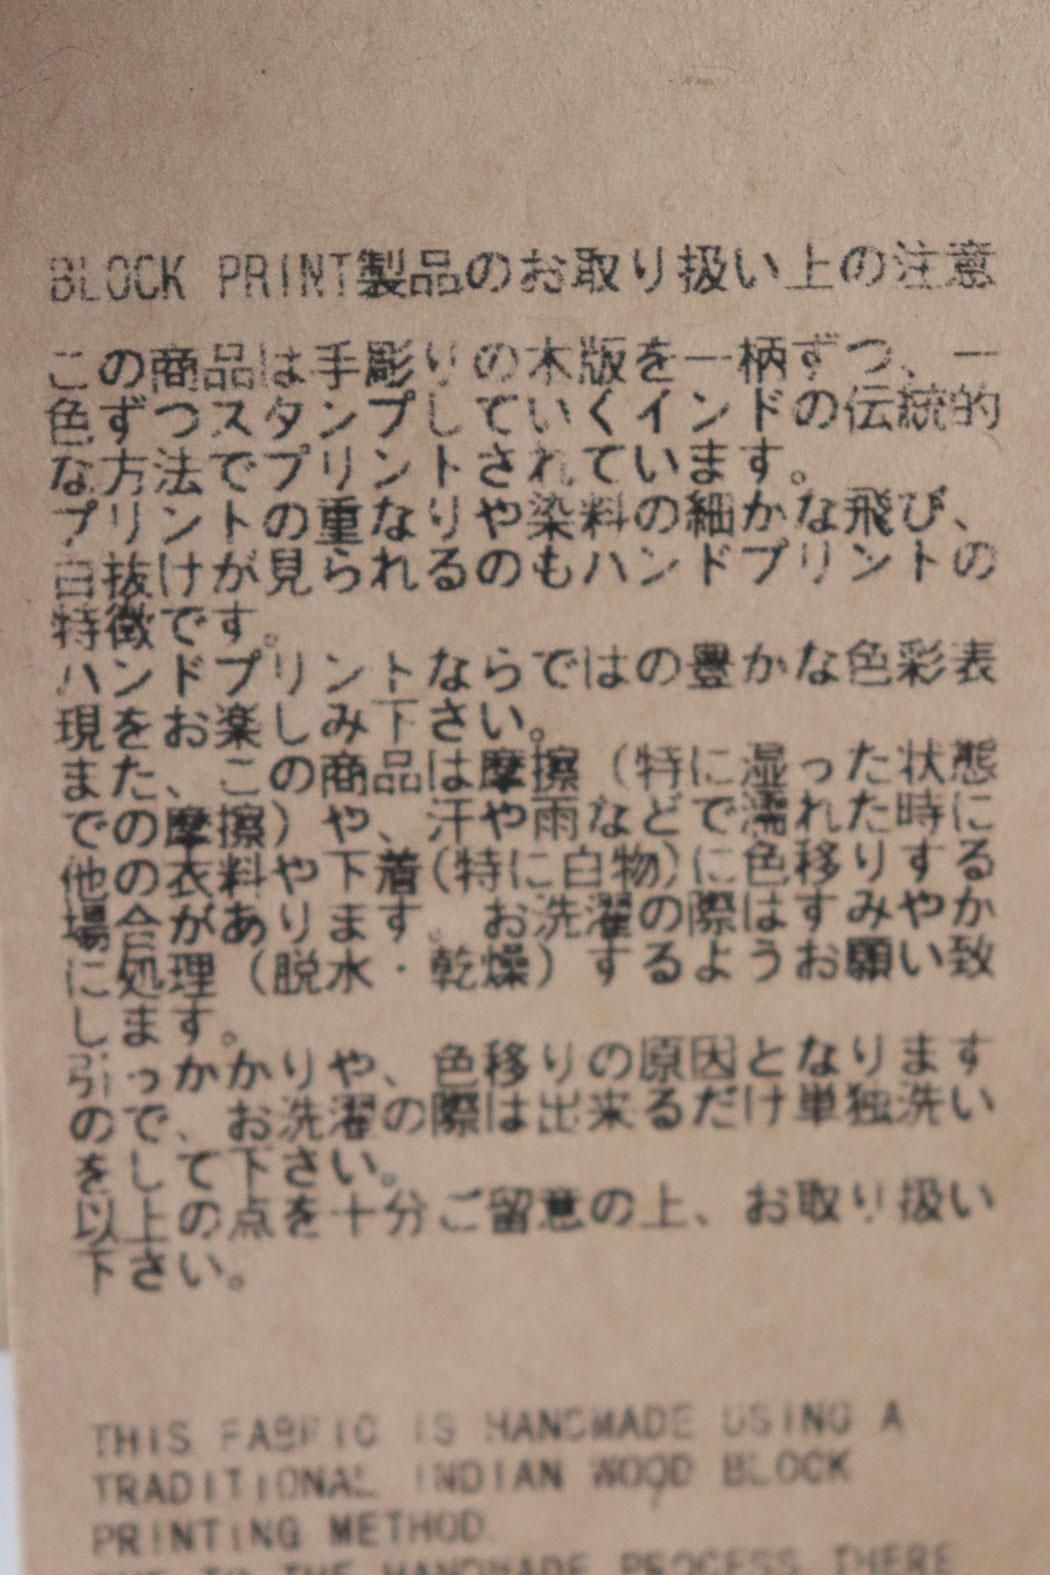 BLOCK PRINT製品のお取り扱い上の注意
この商品は手彫りの木版を一柄ずつ、一
色ずつスタンプしていくインドの伝統的
な方法でプリントされています。
プリントの重なりや染料の細かな飛び、
白抜けが見られるのもハンドプリントの
特徴です。
ハンドプリントならではの豊かな色彩表
現をお楽しみ下さい。
また、この商品は摩擦（特に湿った状態
での摩擦）や、汗や雨などで濡れた時に
他の衣料や下着(特に白物)に色移りする
場合があります。お洗濯の際はすみやか
に処理（脱水・乾燥）するようお願い致
します。
引っかかりや、色移りの原因となります
ので、お洗濯の際は出来るだけ単独洗い
をして下さい。
以上の点を十分ご留意の上、お取り扱い
下さい。
THIS FABRIC IS HANDMADE USING A
TRADITIONAL INDIAN WOOD BLOCK
PRINTING METHOD.
DUE TO THE HANDMADE PROCESS THERE